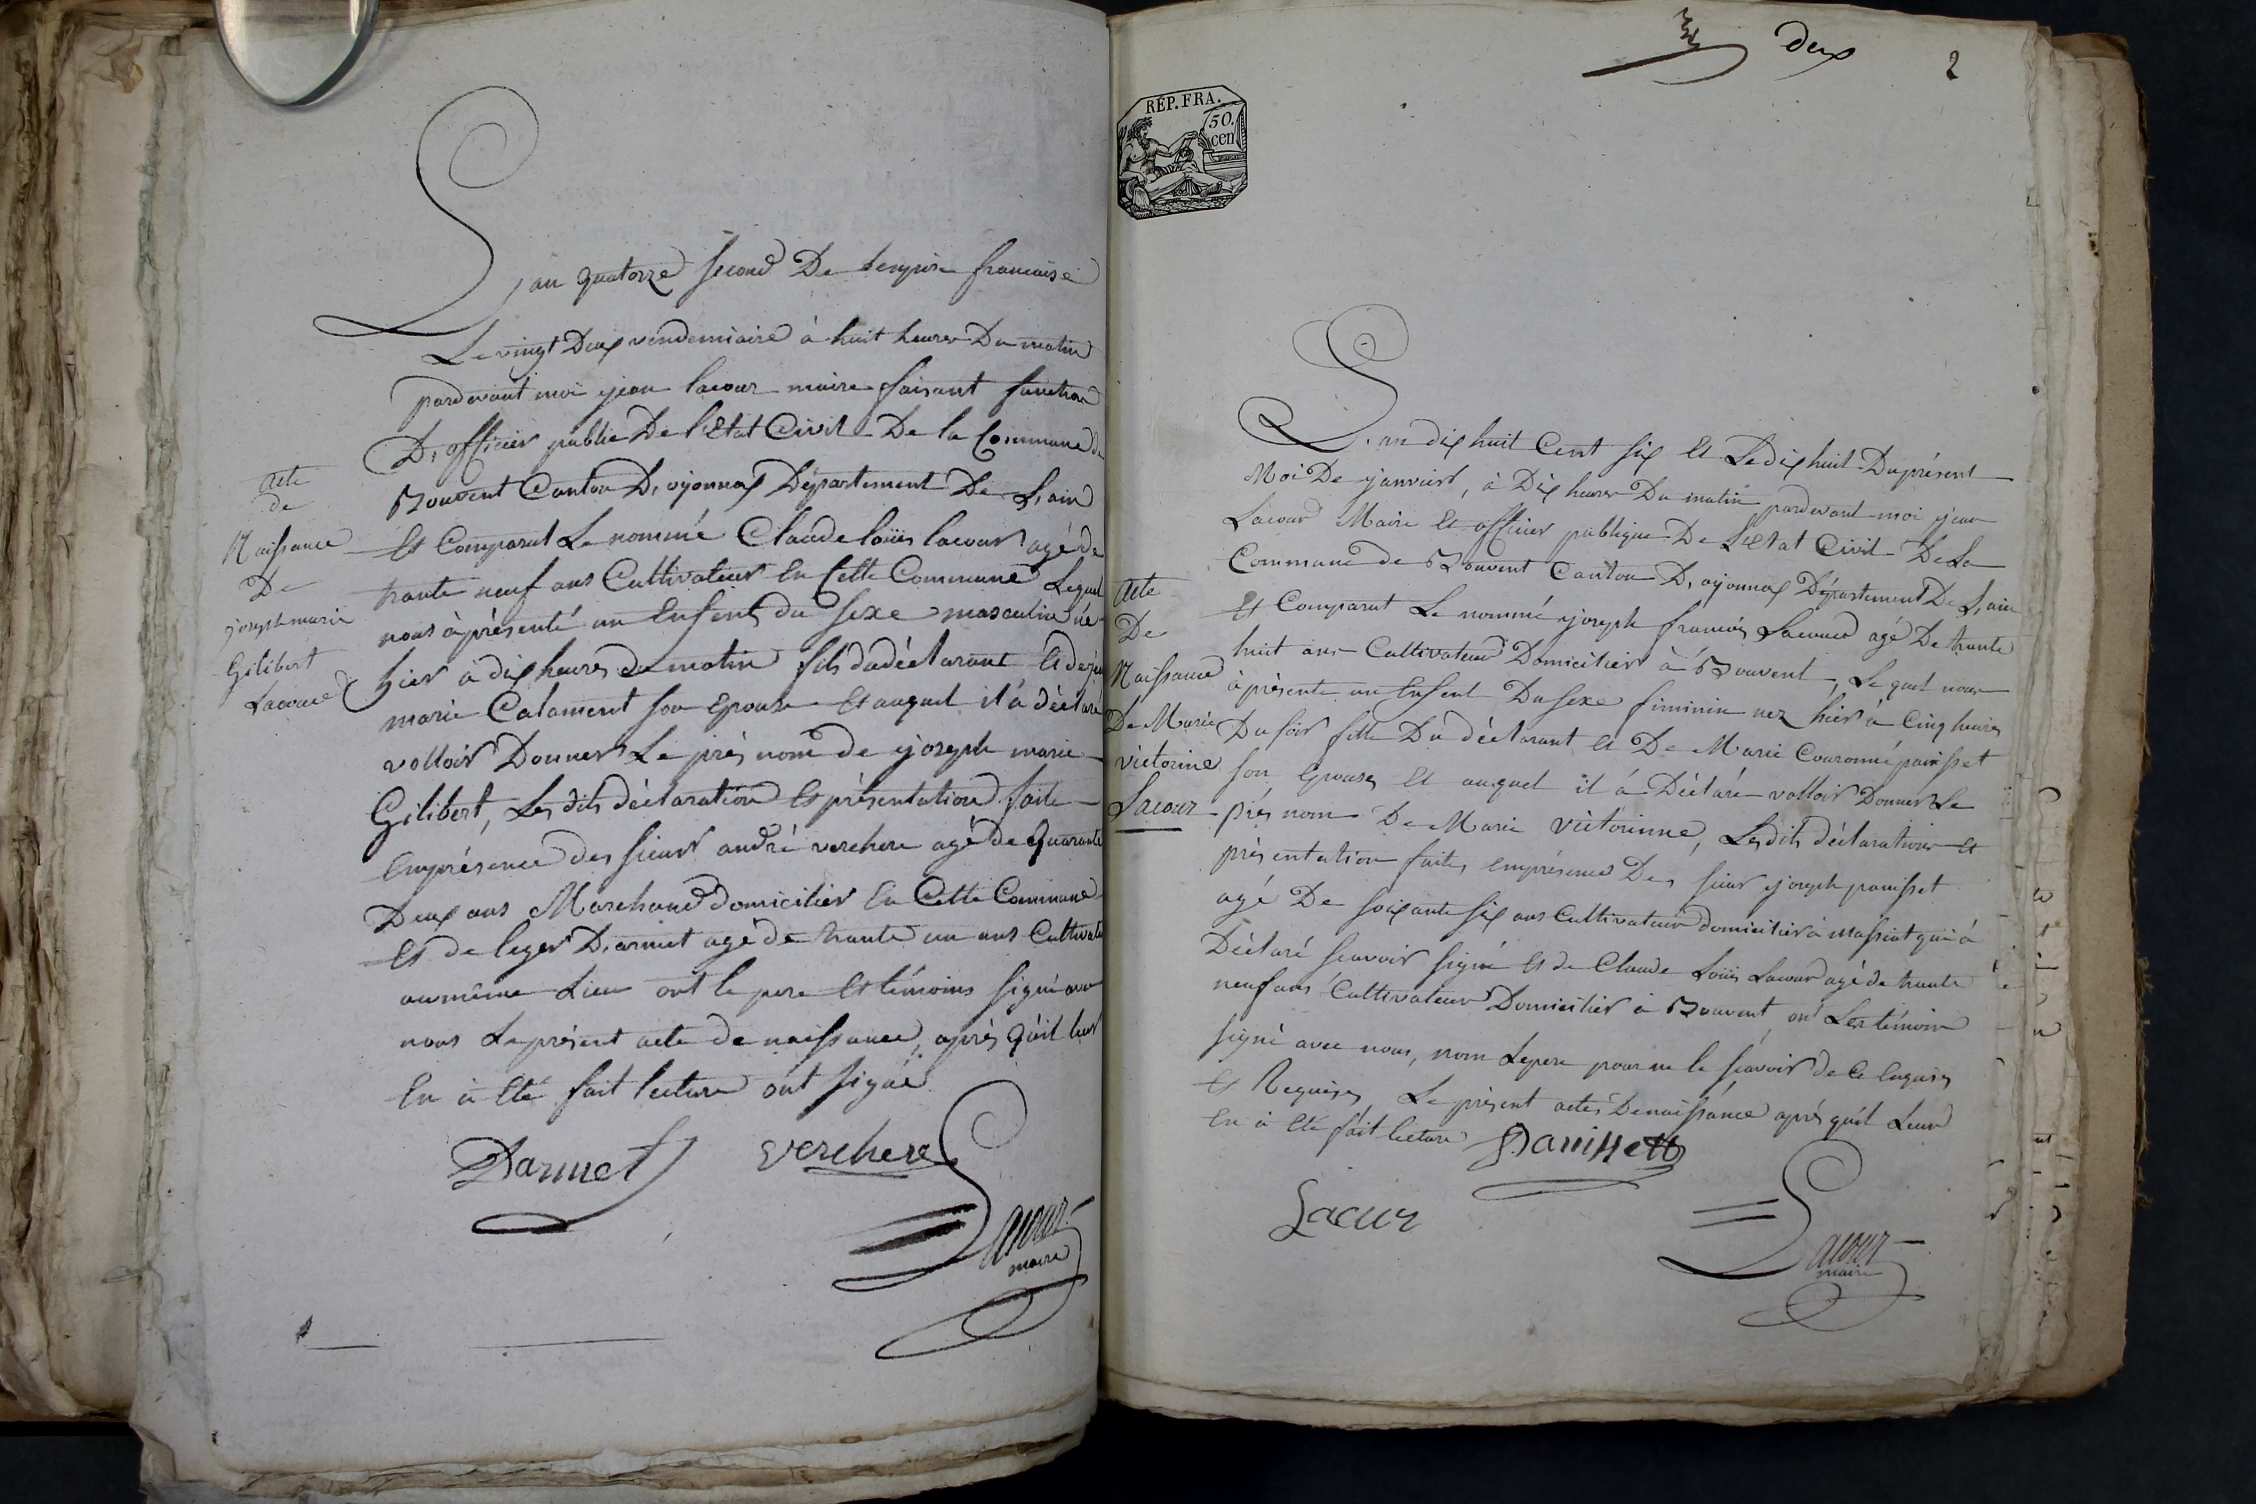 L'an quatorze second De l'empire francaise
Le vingt Deux vendemiaire à huit heures Du matin
pardevant moi jean lacour maire faisant fonction
D, officier public De l'Etat Civil De la Commune de
Bouvent Canton D, oyonnax Département De L, ain
Est Comparut Le nommé Claude loüis lacour agé de
trante neuf ans Cultivateur En Cette Commune Lequel
nous à présenté un Enfent du Sexe masculin né
hier à dix heures du matin fils du déclarant Et de
marie Calament son Epouse Et auquel il à déclaré
volloir Donner Le près nom de joseph marie
Gilibert, Les dits déclaration Et présentation faite
En présence des sieurs andré verchere agé de quarante
Deux ans Marchand domicilier En Cette Commune
Et de leger D, armet agé de trante un ans Cultivateur
au même Lieu ont le pere Et témoins signé avec
nous Le présent acte de naissance, après qu'il leur
En à Eté fait lecture ont signée
Darmet verchere
Lacour
maire
acte
de
Naissance
De
joseph marie
Gilibert
Lacour
deux 2
RÉP. FRA.
50.
cen
L'an dix huit Cent Six Et Le dix huit Du présent
Moi De janvier, à Dix heures Du matin pardevant moi jean
Lacour Maire Et officier publique De L'Etat Civil De La
Commune de Bouvent Canton D, oyonnax Département De L, ain
Est Comparut Le nommé joseph francois Lacour agé De trante
huit ans Cultivateur Domicilier à Bouvent, Le quel nous
à présenté un Enfent Du Sexe fiminin nez hier à Cinq heures
Du soir fille Du déclarant Et De Marie Couronné panisset
son Epouse Et auquel il à Déclaré volloir Donner Le
près nom De Marie victorinne, Les dits déclarations Et
présentation faites en présence Des sieur joseph panisset
agé De soixante six ans Cultivateur domicilier à Massiat qui à
Déclaré scavoir signé Et de Claude Loüis Lacour agé de trante
neuf ans Cultivateur Domicilier à Bouvent, ont Les témoin
signé avec nous, nom Le pere pour ne le scavoir de Ce Enquis
Et Requis, Le présent actes De naissance après qu'il Leur
En à Eté fait lecture Panissett
Lacur
Lacour
maire
acte
De
Naissance
De Marie
victorine
Lacour